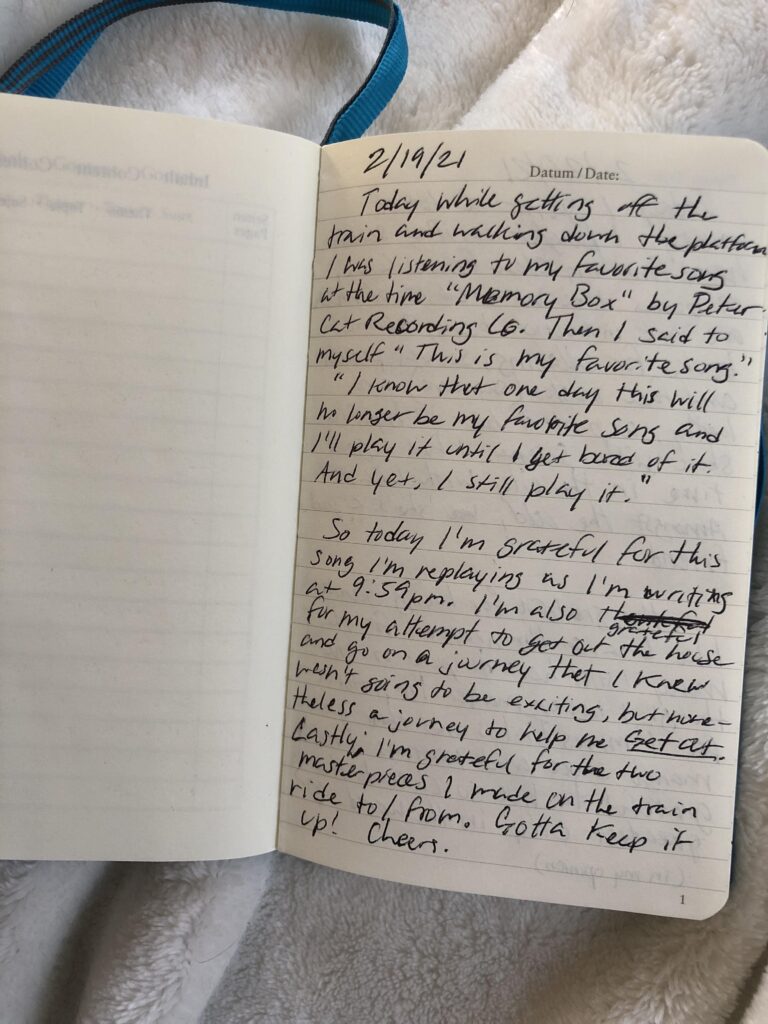 2/19/21
Datum / Date:
Today while getting off the
train and walking down the platform
I was listening to my favorite song
at the time "Memory Box" by Peter
Cat Recording Co. Then I said to
myself "This is my favorite song."
"I know that one day this will
no longer be my favorite song and
I'll play it until I get bored of it.
And yet, I still play it."
So today I'm grateful for this
song I'm replaying as I'm writing
at 9:59pm. I'm also
grateful
for my attempt to get out the house
and go on a journey that I knew
wasn't going to be exciting, but none-
theless a journey to help me Get out.
Lastly, I'm grateful for the two
masterpieces I made on the train
ride to / from. Gotta Keep it
up! Cheers.
1